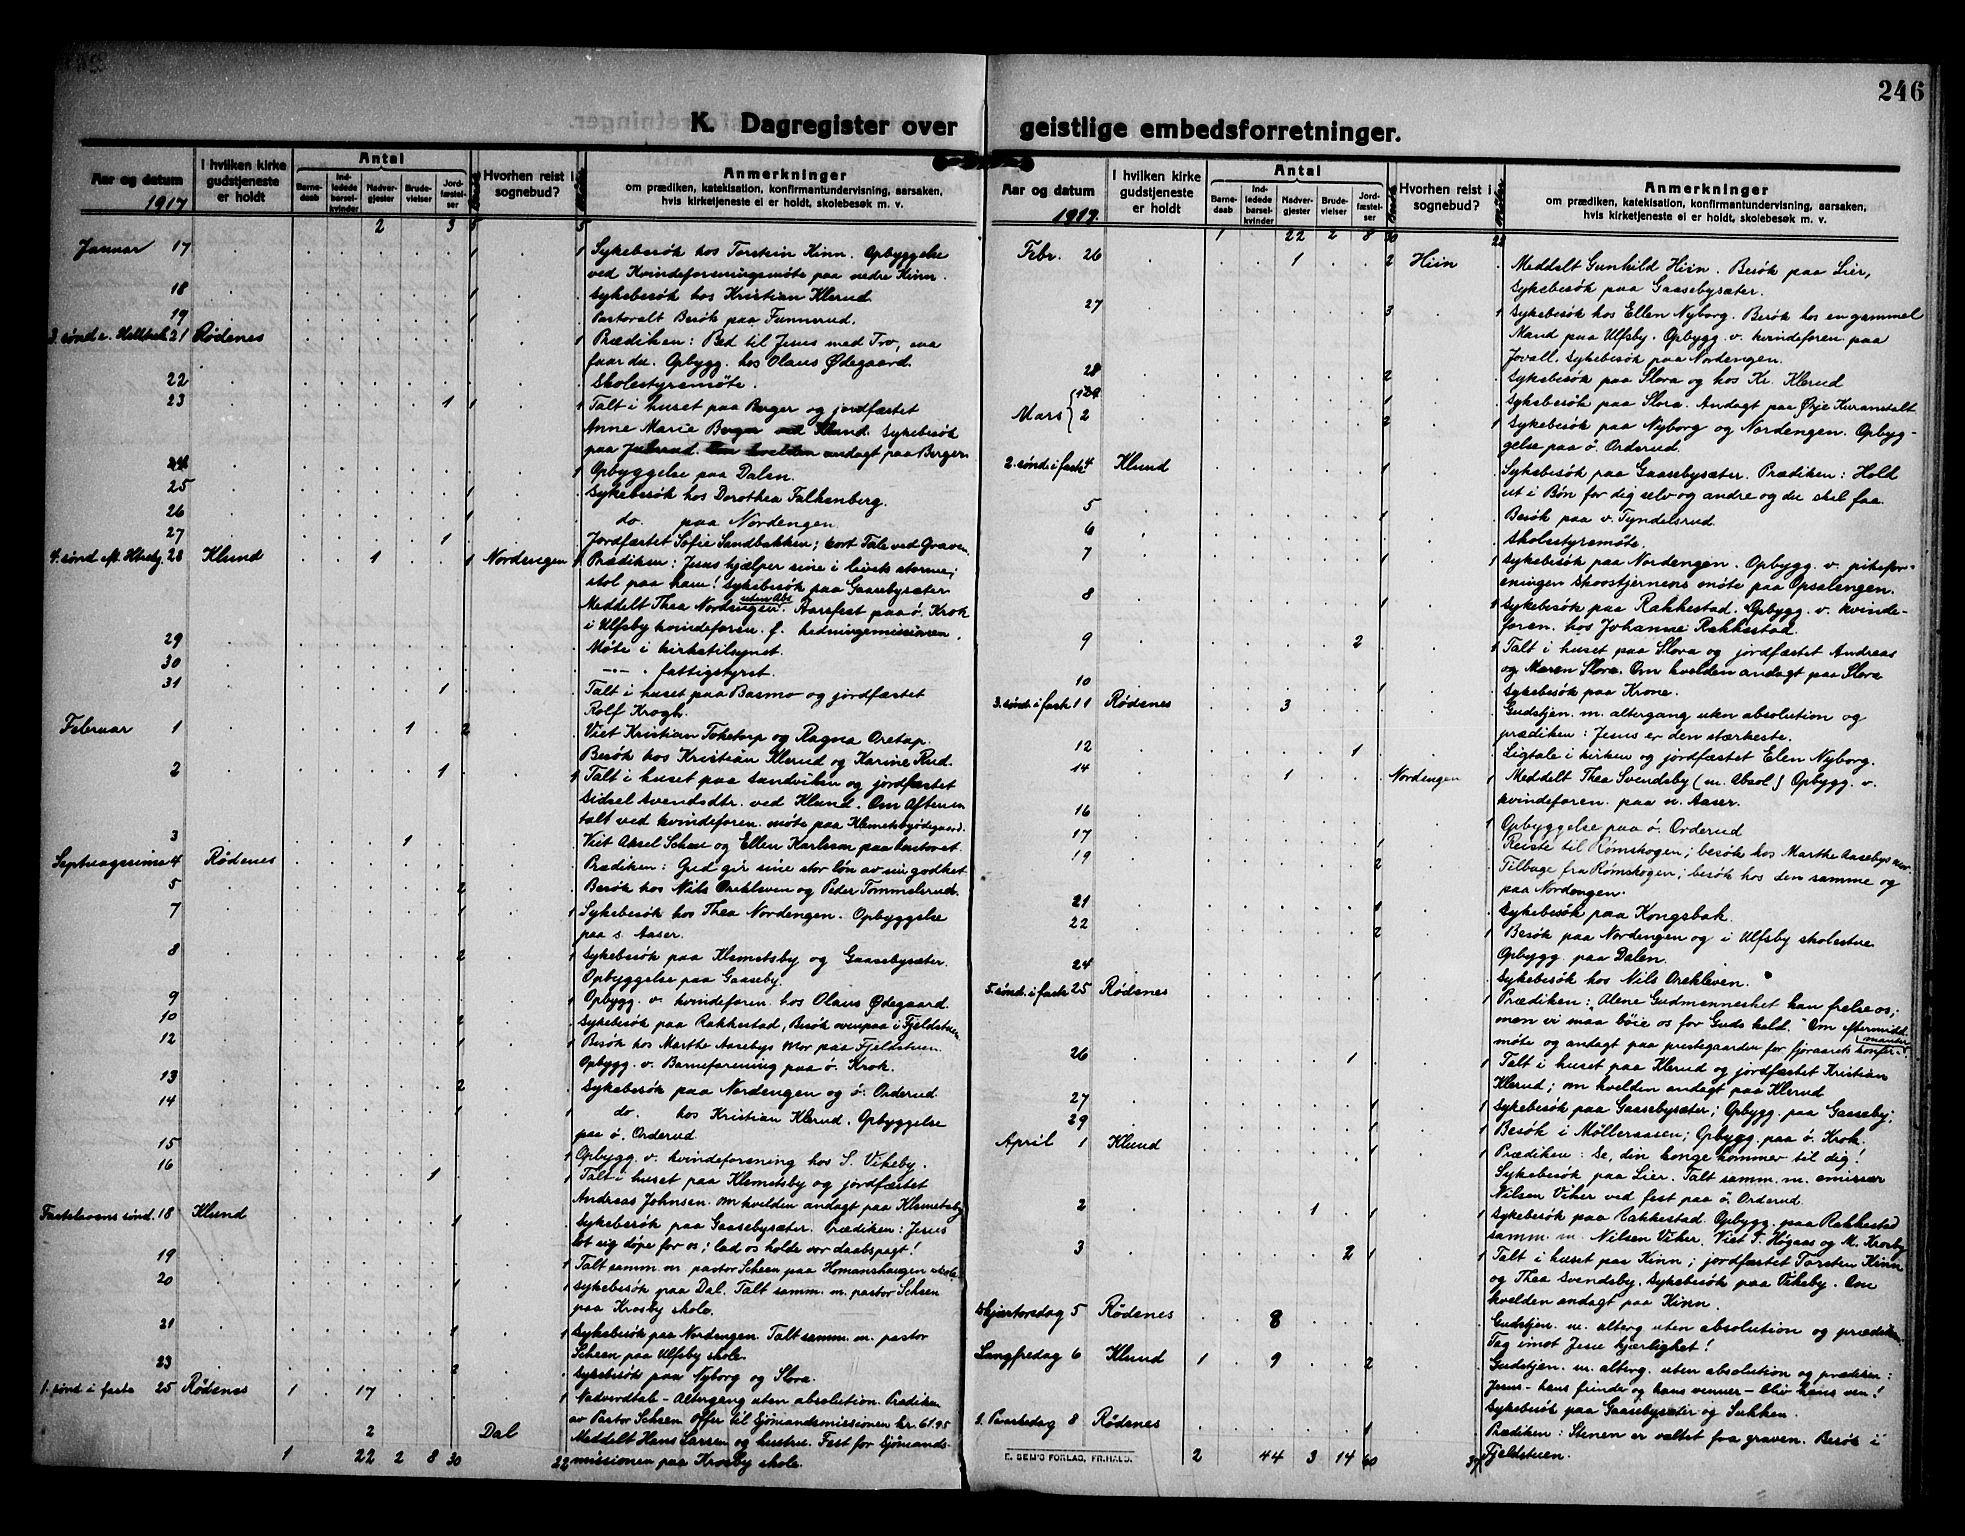 246
K. Dagregister over geistlige embedsforretninger.
Aar og datum
1917
I hvilken kirke gudstjeneste er holdt
Antal
Barnedaab
Indledede barselkvinder
Nadvergjester
Brudevielser
Jordfæstelser
Hvorhen reist i sognebud?
Anmerkninger
om prædiken, katekisation, konfirmantundervisning, aarsaken, hvis kirketjeneste ei er holdt, skolebesøk m. v.
2 3 5 5
Januar 17 1 1 Sykebesök hos Torstein Kinn. Opbyggelse
ved Kvindeforeningsmöte paa nedre Kinn.
18 1 Sykebesök hos Kristian Klerud.
19 1 Pastoralt Besök paa Funnerud.
3. sönd e. Hellitrek. 21 Rödenes 1 Prædiken: Bed til Jesus med Tro, saa
faar du. Opbygg. hos Olaus Ødegaard.
22 Skolestyrsmöte.
23 1 1 1 Talt i huset paa Berger og jordfæstet
Anne Marie Klund. Sykebesök
paa Julsrud. andagt paa Berger.
24 1 Opbyggelse paa Dalen.
25 1 Sykebesök hos Dorothea Falkenberg.
26 1 do. paa Nordengen.
27 1 Jordfæstet Sofie Sandbakken; kort Tale ved Graven.
4. sönd 28 Klund 1 1 Nordengen 1 Prædiken: Jesus hjælper sine i livets storme;
stol paa ham! Sykebesök paa Gaasebysæter.
Meddelt Thea Nordengen uten Abs. Aarsfest paa ö. Krok
i Ulfsby kvindeforen. f. hedningemissionen.
29 Möte i kirketilsynet.
30 —"— fattigstyret.
31 1 Talt i huset paa Basmo og jordfæstet
Rolf Krogh.
Februar 1 1 2 Viet Kristian Toketorp og Ragna Oretap.
Besök hos Kristian Klerud og Karine Rud.
2 1 1 Talt i huset paa Sandviken og jordfæstet
Sidsel Svendsdtr. ved Klund. Om Aftenen
talt ved kvindeforen. möte paa Klemetsbyödegaard.
3 1 Viet Aksel Schou og Ellen Karlsson paa kontoret.
Septuagesima 4 Rödenes Prædiken: Gud gir sine stor lön av sin godhet.
5 2 Besök hos Nils Orekleven og Peder Tommelsrud.
7 1 1 Sykebesök hos Thea Nordengen. Opbyggelse
paa s. Aaser.
8 2 Sykebesök paa Klemetsby og Gaasebysæter.
Opbyggelse paa Gaaseby.
9 1 Opbygg. v. kvindeforen. hos Olaus Ødegaard.
10 2 Sykebesök paa Rakkestad, Besök ovenpaa i Fjeldstuen.
12 1 1 Besök hos Marthe Aasebys Mor paa Fjeldstuen.
Opbygg. v. Barneforening paa ö. Krok.
13 2 Sykebesök paa Nordengen og ö. Orderud.
14 1 1 do. hos Kristian Klerud. Opbyggelse
paa ö. Orderud
15 1 Opbygg. v. kvindeforening hos S. Vikeby.
16 1 1 Talt i huset paa Klemetsby og jordfæstet
Andreas Johnsen. Om kvelden andagt paa Klemetsby
Fastelavens sönd. 18 Klund 1 Sykebesök paa Gaasebysæter. Prædiken: Jesus
lot sig döpe for os; lad os holde vor daabspagt!
19 1 Talt samm. m. pastor Scheen paa Homanshaugen skole.
20 1 1 Sykebesök paa Dal. Talt samm. m. pastor Scheen
paa Krosby skole.
21 1 1 Sykebesök paa Nordengen. Talt samm. m. pastor
Scheen paa Ulfsby skole.
23 2 Sykebesök paa Nyborg og Slora.
1. sönd i faste 25 Rödenes 1 17 1 Nadverdtale – Altergang uten absolution. Prædiken
av Pastor Scheen. Offer til Sjömandsmissionen kr. 61.95
2 Dal Meddelt Hans Larsen og hustru. Fest for Sjömands-
1 22 2 8 30 22 missionen paa Krosby skole.
Aar og datum
1917.
I hvilken kirke gudstjeneste er holdt
Antal
Barnedaab
Indledede barselkvinder
Nadvergjester
Brudevielser
Jordfæstelser
Hvorhen reist i sognebud?
Anmerkninger
om prædiken, katekisation, konfirmantundervisning, aarsaken, hvis kirketjeneste ei er holdt, skolebesøk m. v.
1 22 2 8 30 22
Febr. 26 1 2 Hiin Meddelt Gunhild Hiin. Besök paa Lier,
Sykebesök paa Gaasebysæter.
27 3 1 Sykebesök hos Ellen Nyborg. Besök hos en gammel
Mand paa Ulfsby. Opbygg. v. kvindeforen. paa
Jovall. Sykebesök paa Nordengen.
28 2 Sykebesök paa Slora og hos Kr. Klerud
1 Sykebesök paa Slora. Andagt paa Ørje Kuranstalt
Mars 2 2 1 Sykebesök paa Nyborg og Nordengen. Opbyg-
gelse paa ö. Orderud.
2. sönd. i faste 4 Klund 1 Sykebesök paa Gaasebysæter. Prædiken: Hold
ut i Bön for dig selv og andre og du skal faa
5 1 Besök paa v. Tyndelsrud.
6 Skolestyrsmöte.
7 1 1 Sykebesök paa Nordengen. Opbygg. v. pikefor-
eningen Skoostjernens möte paa Opsalengen.
8 1 1 Sykebesök paa Rakkestad. Opbygg. v. kvinde-
foren. hos Johanne Rakkestad.
9 2 1 Talt i huset paa Slora og jordfæstet Andreas
og Maren Slora. Om kvelden andagt paa Slora
10 1 Sykebesök paa Krone.
3. sönd. i faste 11 Rödenes 3 Gudstjen. m. altergang uten absolution og
prædiken: Jesus er den stærkeste.
12 1 Ligtale i kirken og jordfæstet Elen Nyborg.
14 1 Nordengen 1 Meddelt Thea Svendsby (m. Absol) Opbygg. v.
kvindeforen. paa n. Aaser.
16 1 Opbyggelse paa ö. Orderud
17 1 Reiste til Römskogen; besök hos Marthe Aasebys mor.
19 2 Tilbage fra Römskogen; besök hos den samme og
paa Nordengen.
21 1 Sykebesök paa Kongsbak.
22 2 1 Besök paa Nordengen og i Ulfsby skolestue
Opbygg. paa Dalen.
24 1 Sykebesök hos Nils Orekleven.
5. sönd. i faste 25 Rödenes 1 Prædiken: Alene Gudmennesket kan frelse os;
men vi maa böie os for Guds kald. Om eftermidd.
möte og andagt paa prestegaarden for fjoraarets konfir-
manter
26 1 1 Talt i huset paa Klerud og jordfæstet Kristian
Klerud; om kvelden andagt paa Klerud
27 1 1 Sykebesök paa Gaasebysæter; Opbygg. paa Gaaseby.
29 1 1 Besök i Möllersaasen; Opbygg. paa ö. Krok.
April 1 Klund 1 1 Prædiken: Se, din konge kommer til dig!
Sykebesök paa Lier. Talt samm. m. emissær
Nilsen Viker ved fest paa ö. Orderud.
2 1 1 1 Sykebesök paa Rakkestad. Opbygg. paa Rakkestad
samm. m. Nilsen Viker. Viet T. Högaas og M. Krosby
3 2 1 1 Talt i huset paa Kinn; jordfæstet Torsten Kinn
og Thea Svendsby. Sykebesök paa Vikeby. Om
kvelden andagt paa Kinn.
Skjærtorsdag 5 Rödenes 8 Gudstjen. m. alterg uten absolution og prædiken
Tag imot Jesu kjærlighet!
Langfredag 6 Klund 1 9 2 Gudstjen. m. alterg. uten absolution og prædiken:
Jesus – hans fiender og hans venner – bliv hans ven!
Sykebesök paa Gaasebysæter og Sukken.
1. Paaskedag 8 Rödenes 1 Prædiken: Stenen er væltet fra graven. Besök i
2 44 3 14 60 Fjeldstuen.
E. SEM'S FORLAG, FR.HALD.